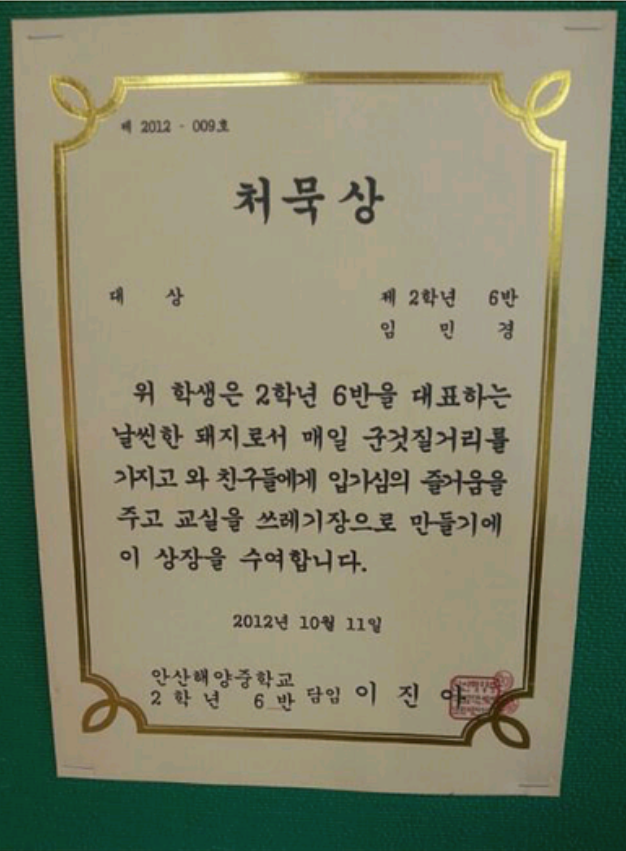 제 2012 - 009호
처묵상
대 상 제 2학년 6반
임 민 경
위 학생은 2학년 6반을 대표하는
날씬한 돼지로서 매일 군것질거리를
가지고 와 친구들에게 입가심의 즐거움을
주고 교실을 쓰레기장으로 만들기에
이 상장을 수여합니다.
2012년 10월 11일
안산해양중학교
2 학 년 6 반 담임 이 진 아